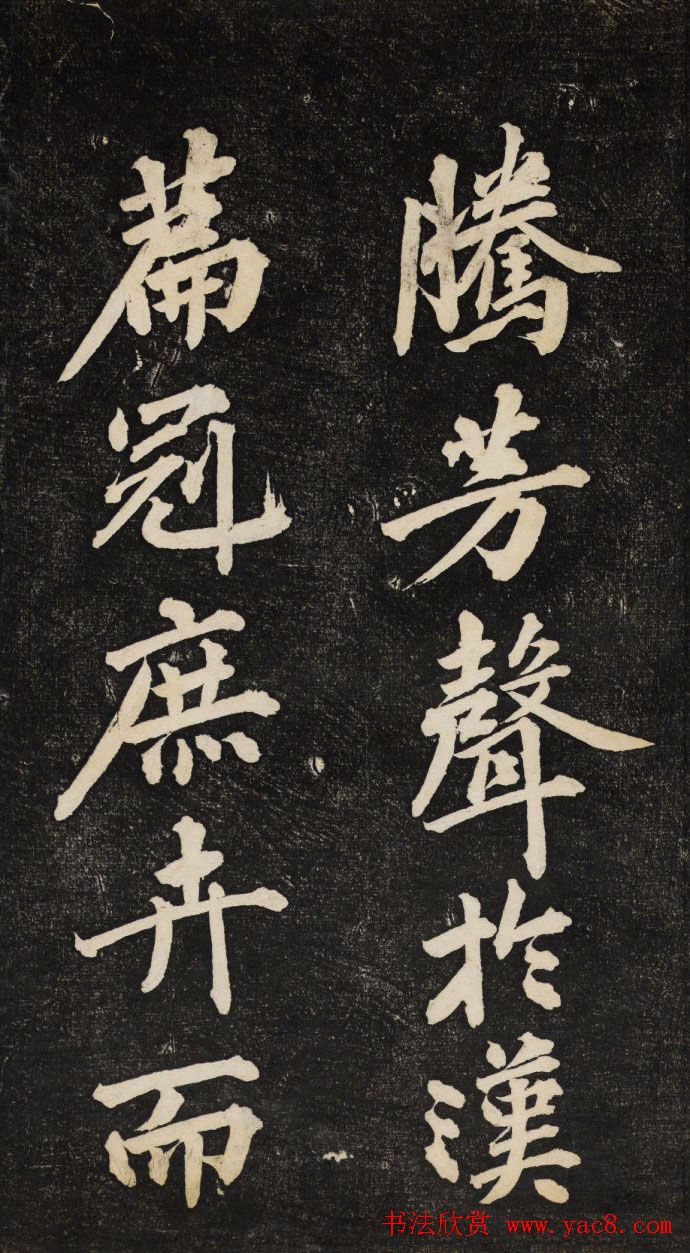 騰芳聲於漢
篇冠庶卉而
书法欣赏 www.yac8.com